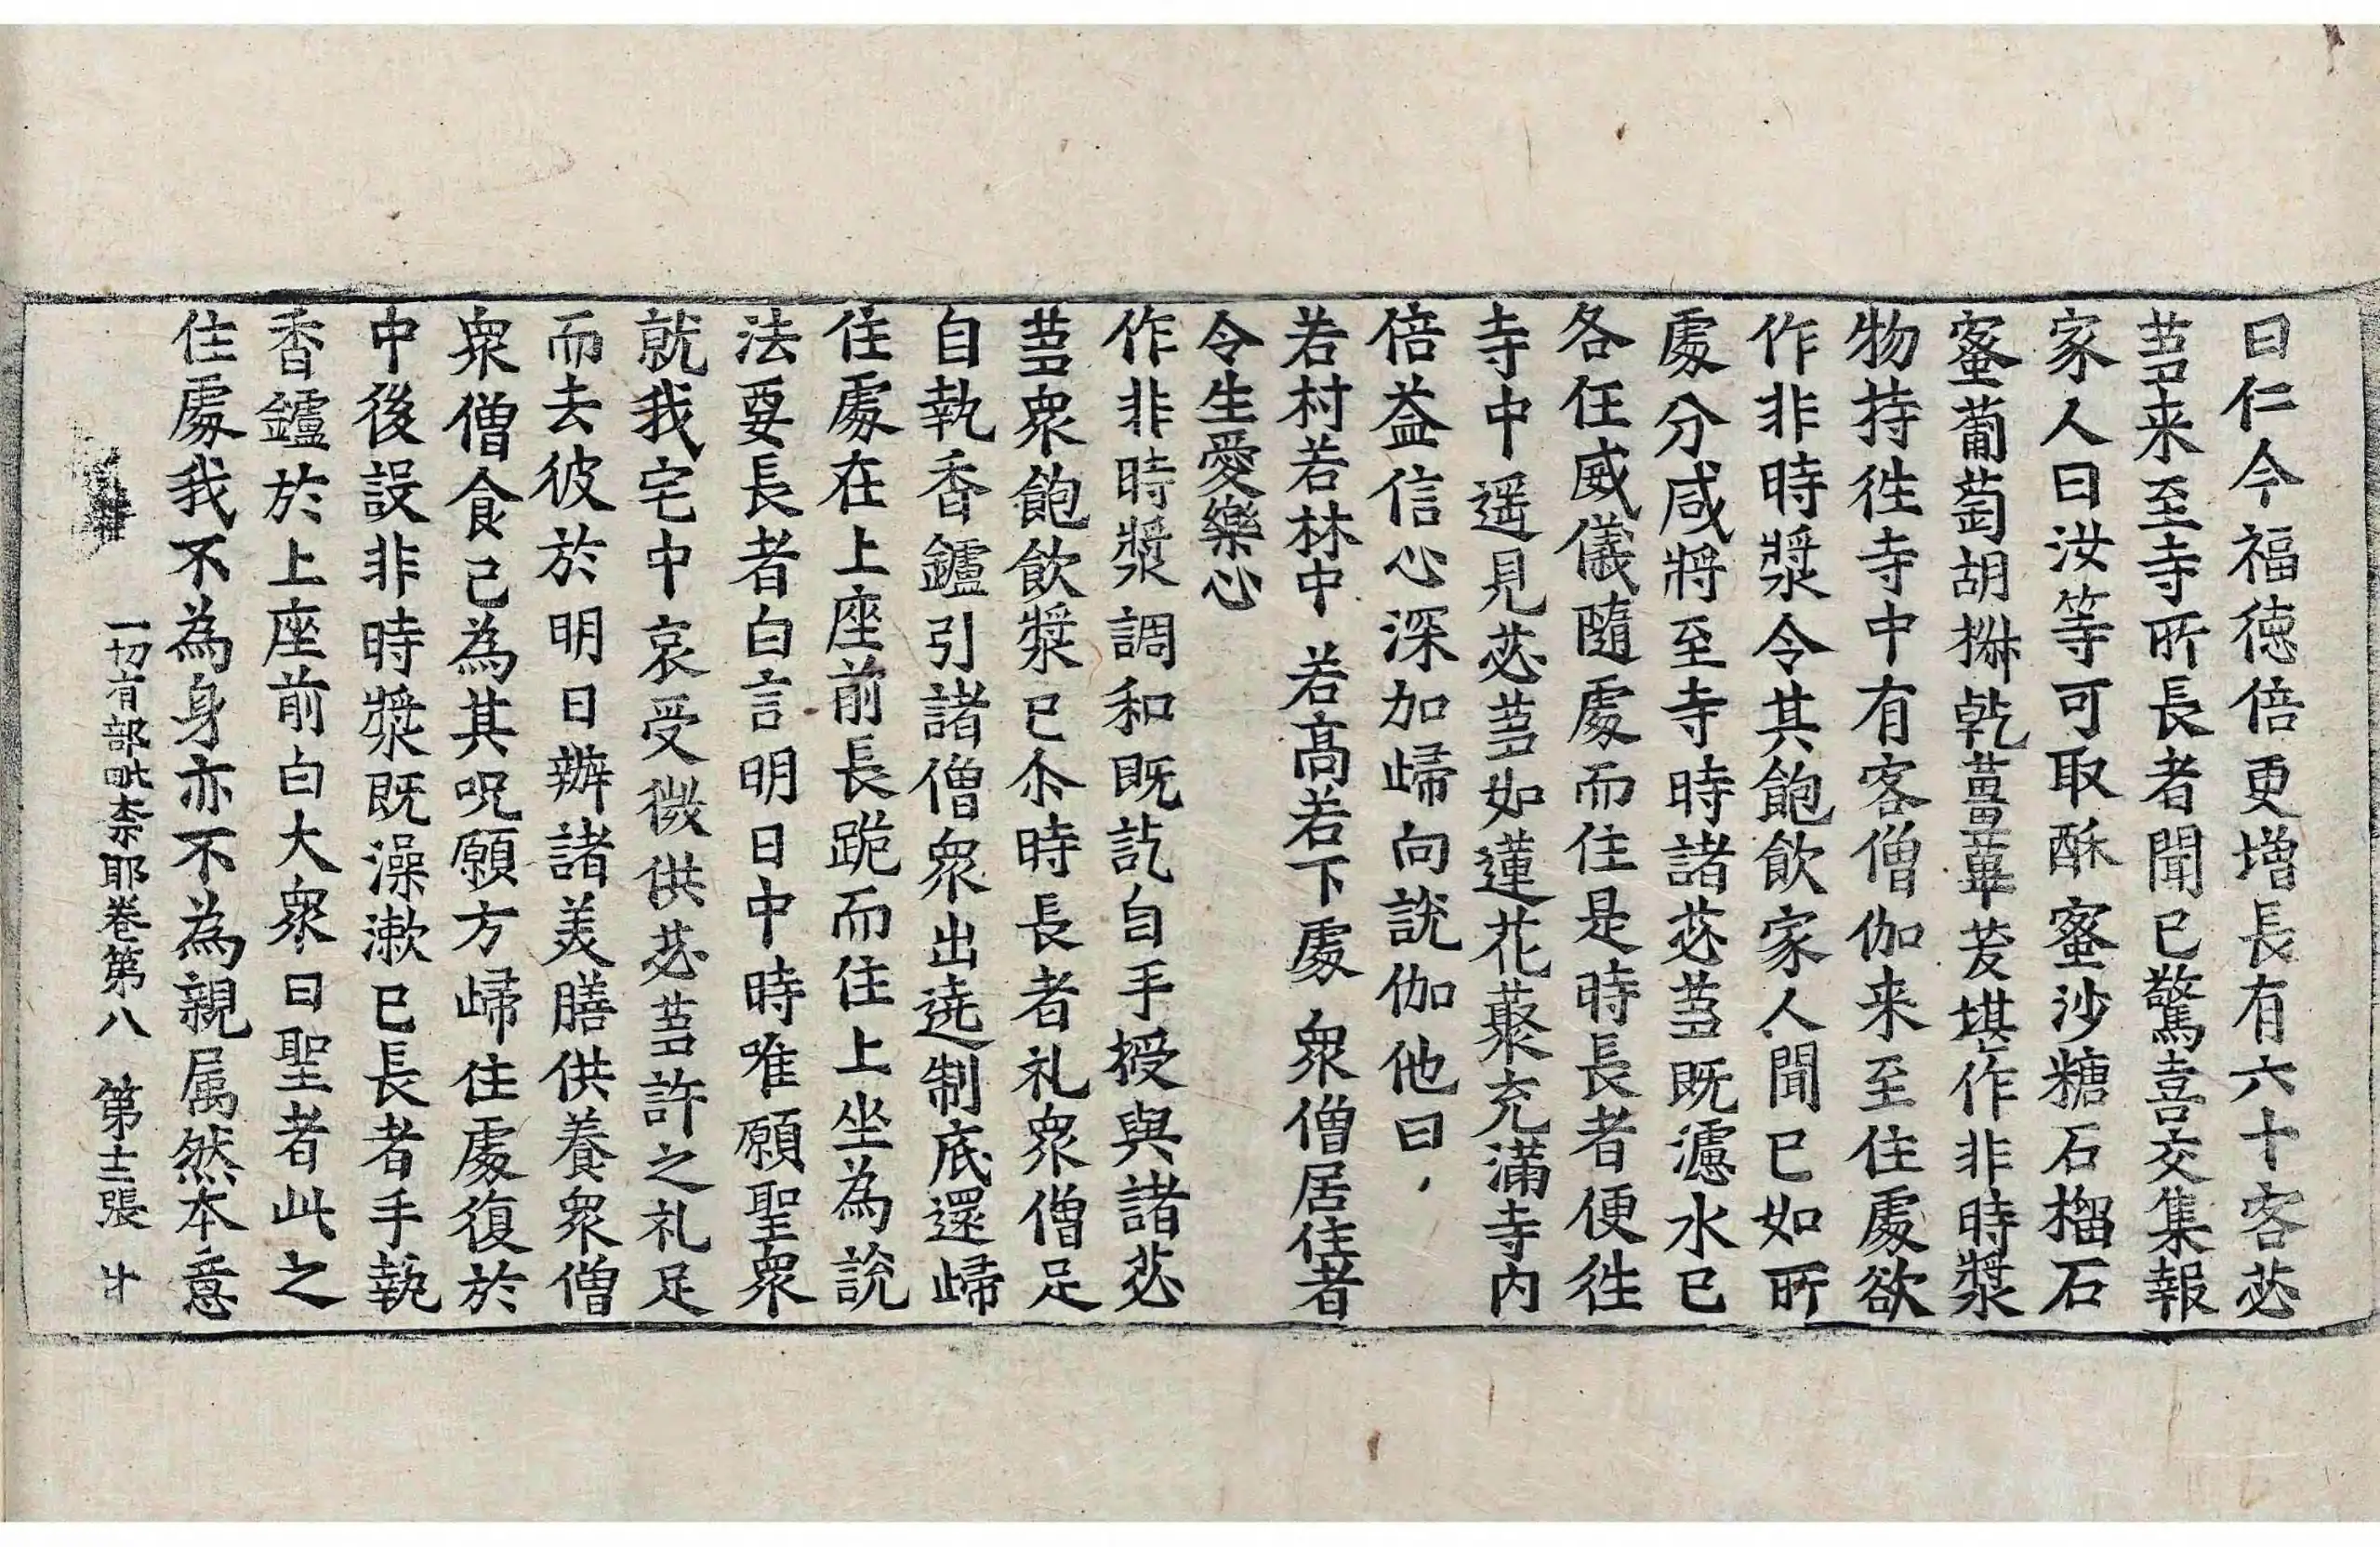 曰仁今福徳倍更增長有六十客苾
蒭来至寺所長者聞已驚喜交集報
家人曰汝等可取酥蜜沙糖石榴石
蜜蒱萄胡椒乹薑蓽茇堪作非時漿
物持徃寺中有客僧伽来至住處欲
作非時漿令其飽飲家人聞已如所
處分咸將至寺時諸苾蒭既濾水已
各住威儀隨處而住是時長者便徃
寺中遥見苾蒭如蓮花藂充滿寺内
倍益信心深加歸向說伽他曰
若村若林中 若髙若下處 衆僧居住者
令生愛樂心
作非時漿調和既訖自手授與諸苾
蒭衆飽飲漿已尒時長者礼衆僧足
自執香鑪引諸僧衆出遶制底還歸
住處在上座前長跪而住上坐為説
法要長者白言明日中時唯願聖衆
就我宅中哀受微供苾蒭許之礼足
而去彼於明日辦諸美膳供養衆僧
衆僧食已為其呪願方歸住處復於
中後設非時漿既澡漱已長者手執
香鑪於上座前白大衆曰聖者此之
住處我不為身亦不為親属然本意
一切有部毗柰耶卷第八 第十三張 廾